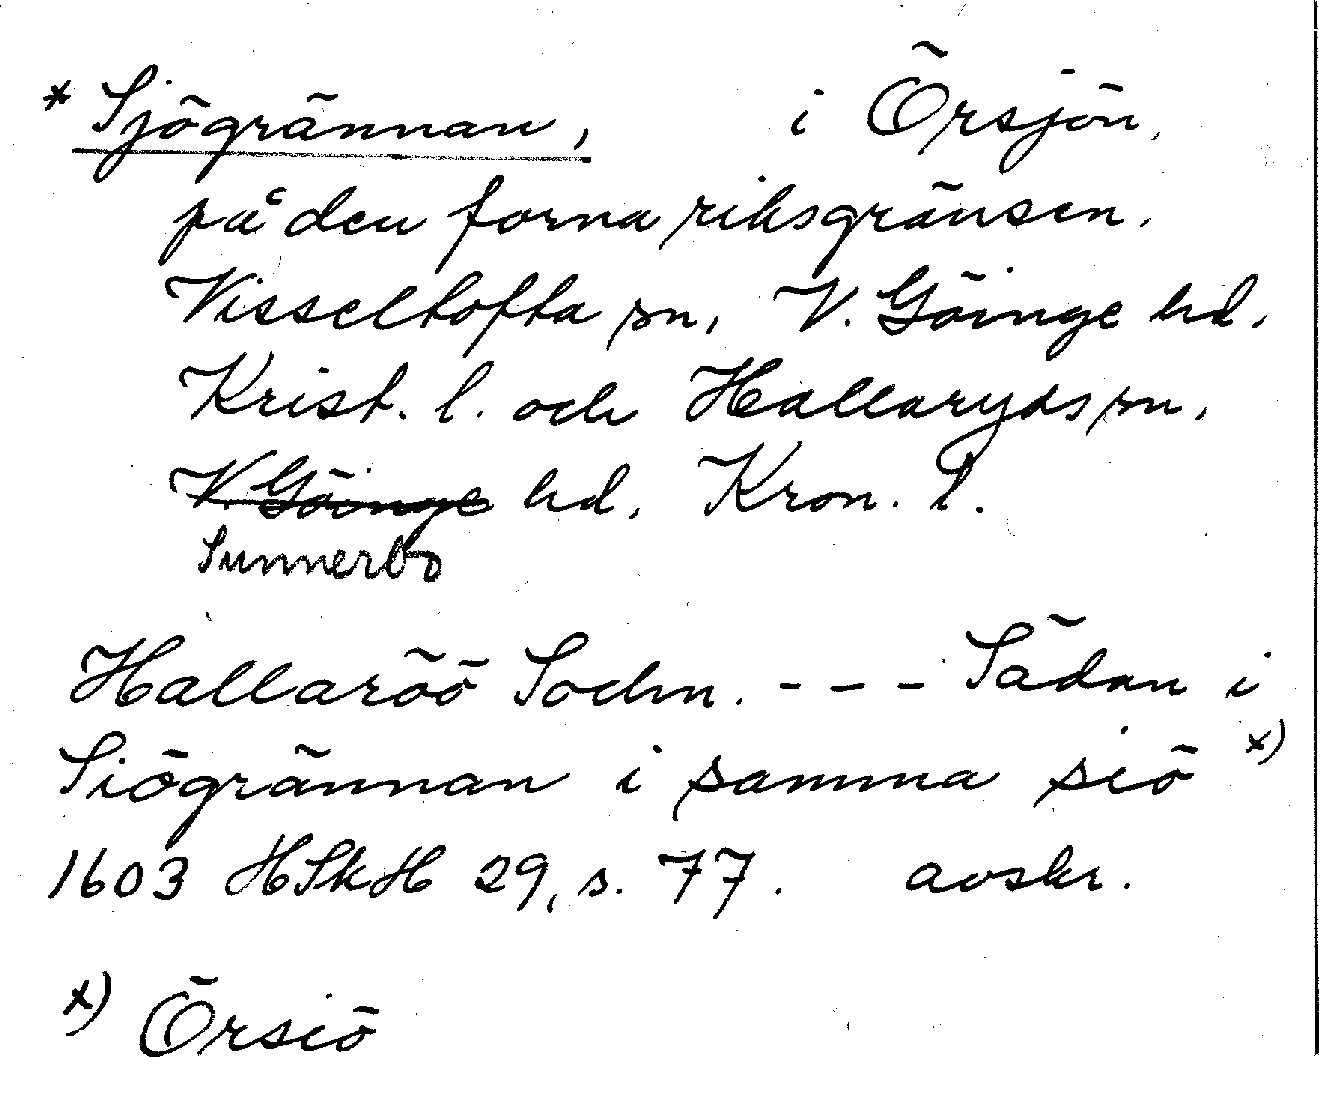 * Sjögrännan, i Örsjön,
på den forna riksgränsen.
Visseltofta sn, V. Göinge hd.
Krist. l. och Hallaryds sn,
V. Göinge hd, Kron. l.
Sunnerbo
Hallaröö Sochn. - - - Sädan i
Siögrännan i samma siö x)
1603 HSkH 29, s. 77. avskr.
x) Örsiö